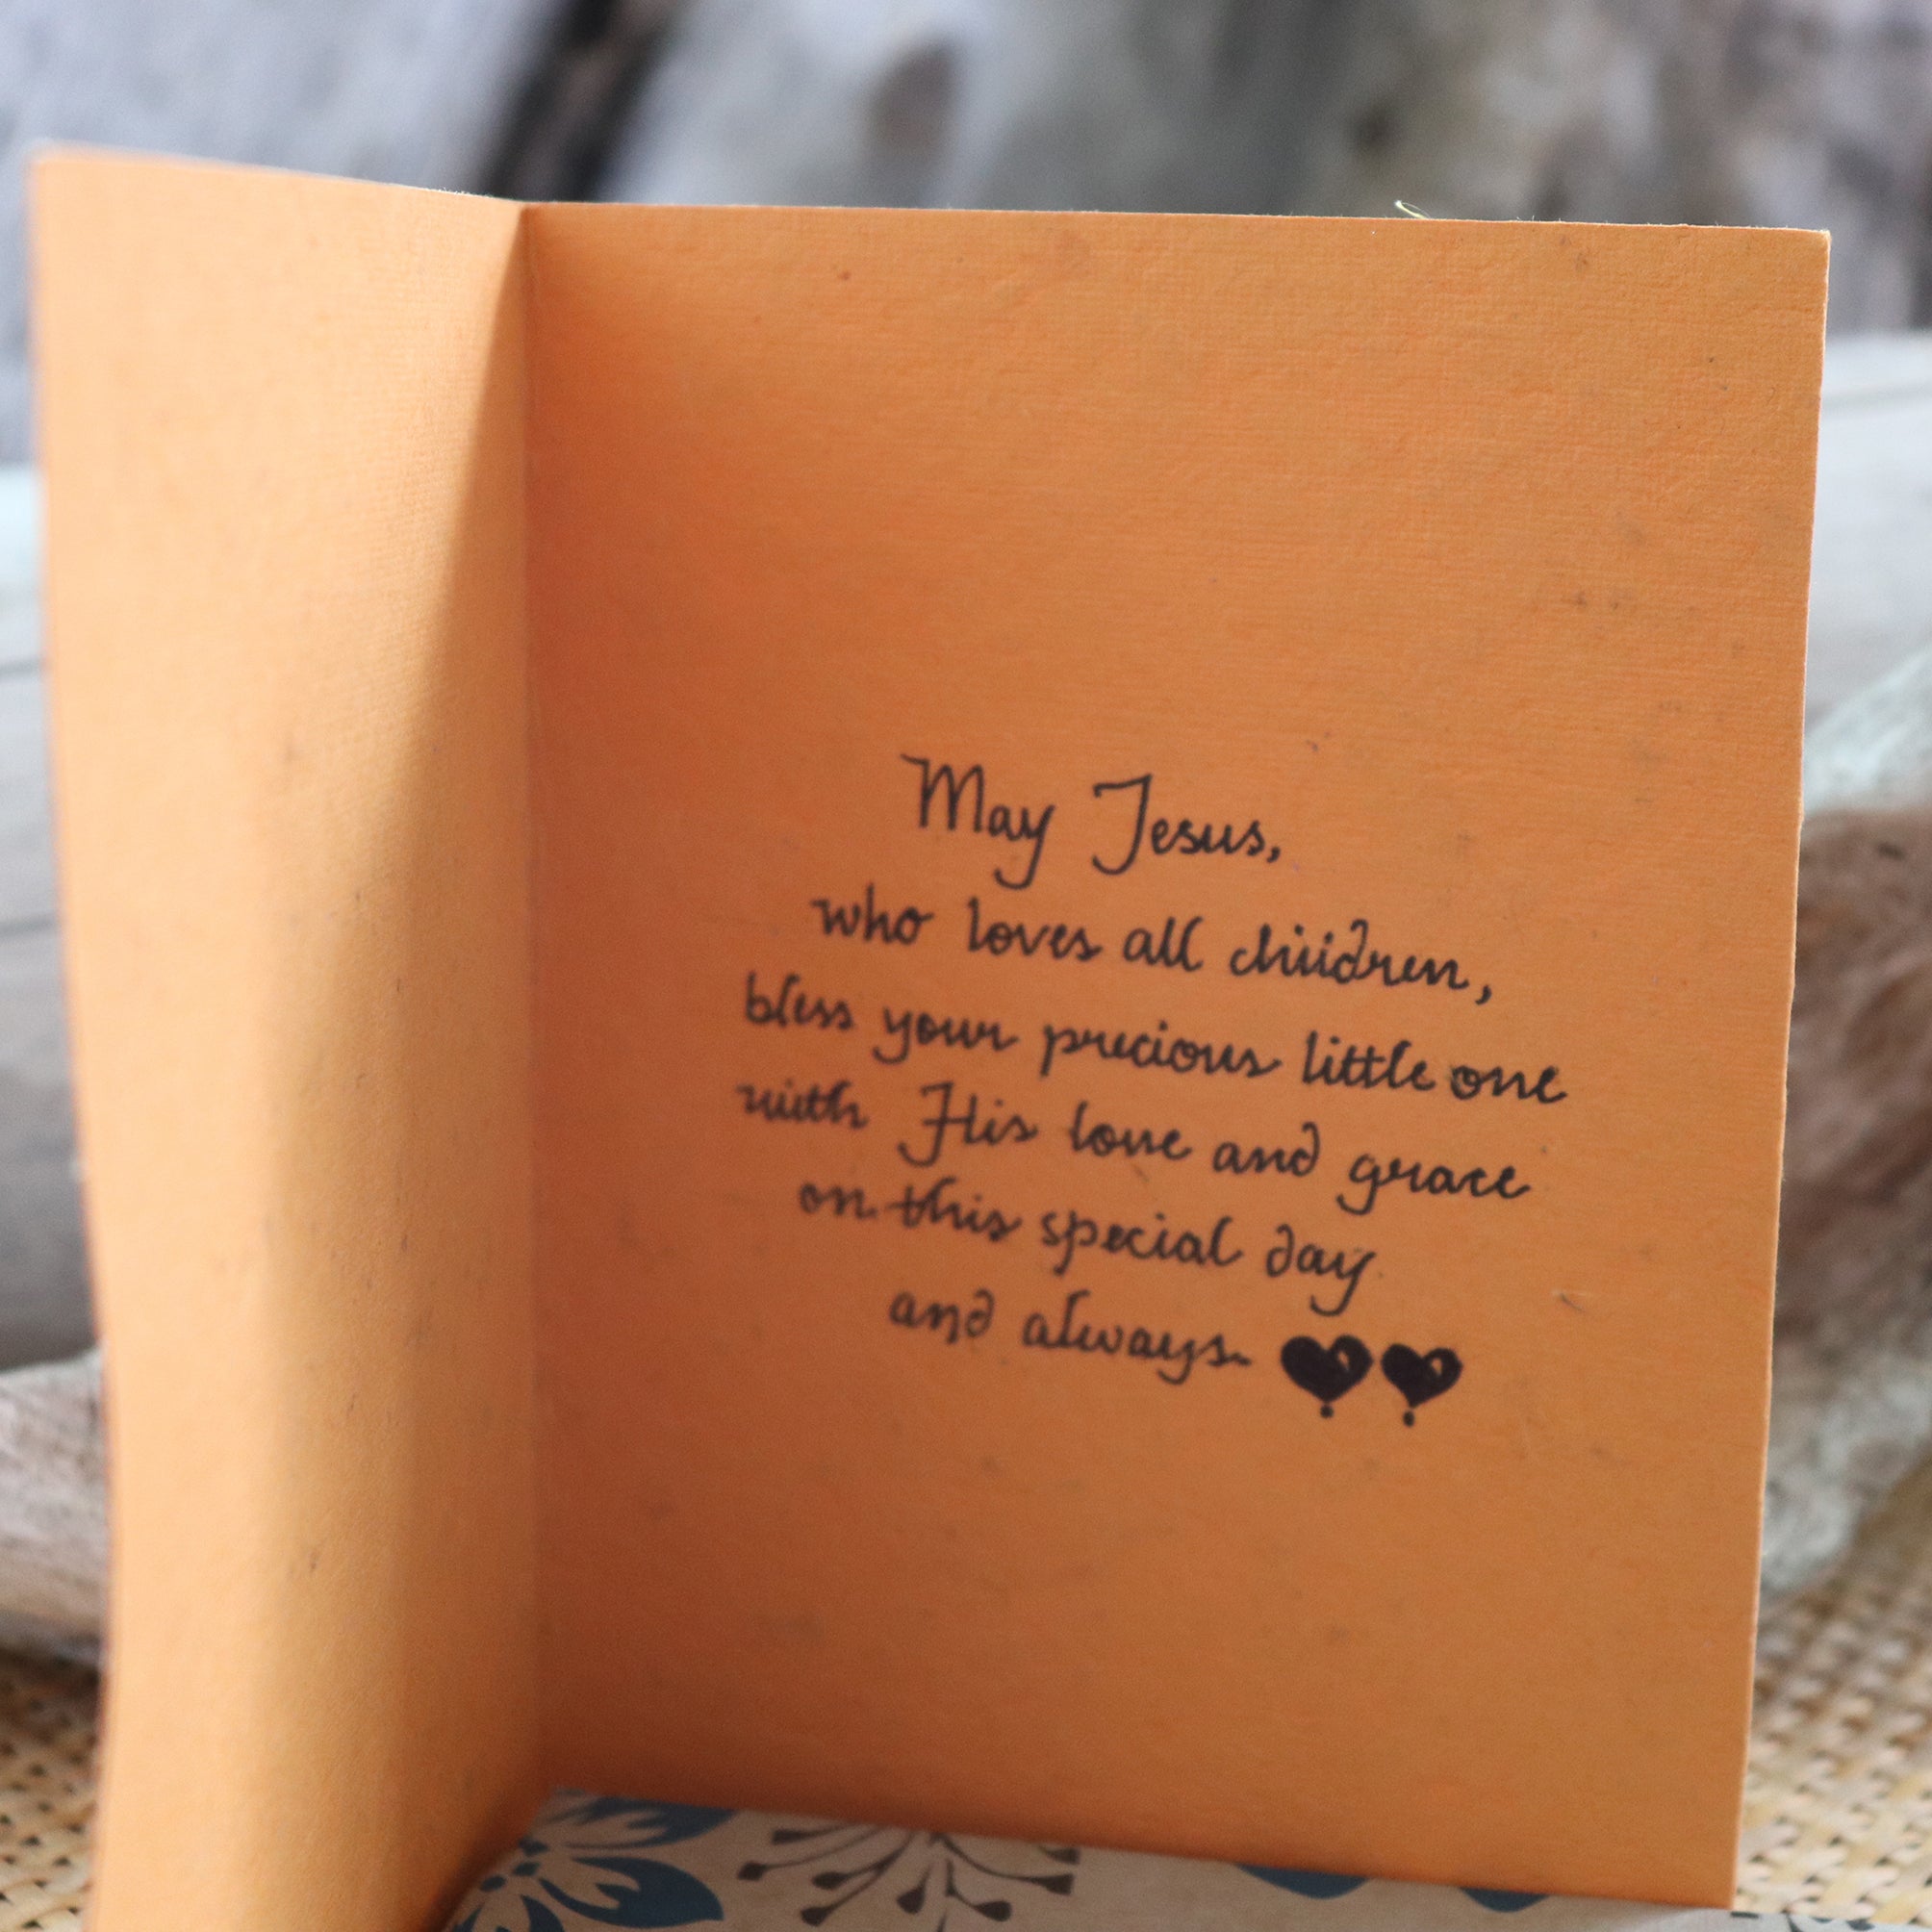 May Jesus,
who loves all children,
bless your precious little one
with His love and grace
on this special day
and always.